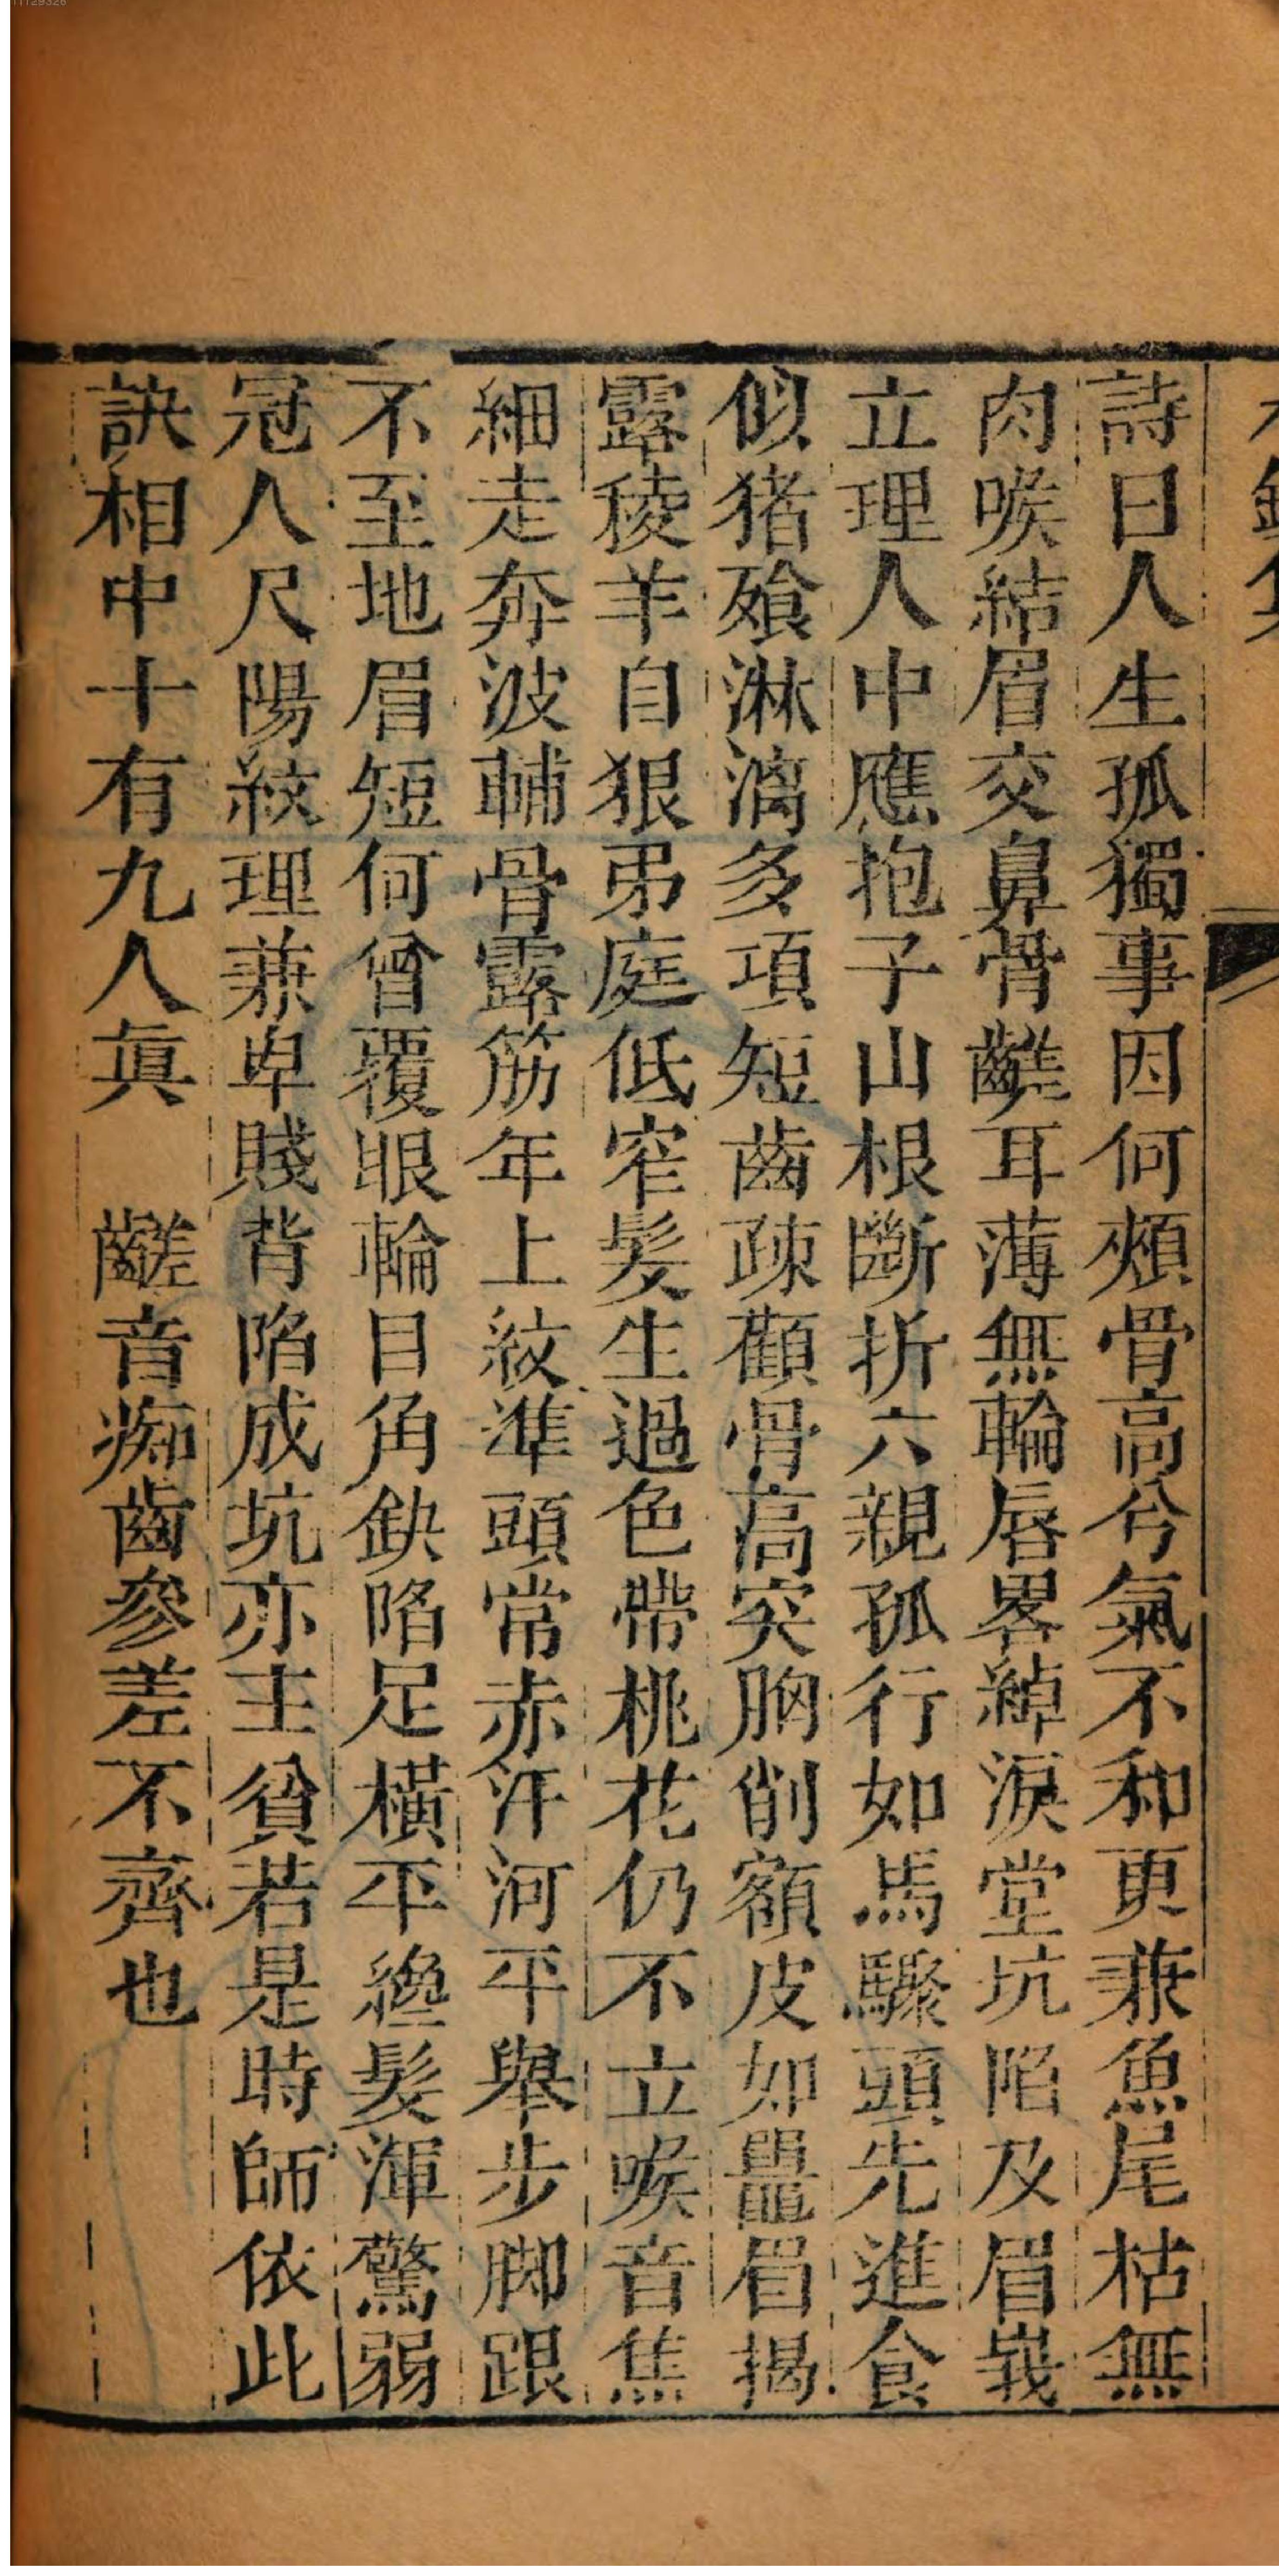 詩曰人生孤獨事因何頰骨高兮氣不和更兼魚尾枯無
肉喉結眉交鼻骨齹耳薄無輪唇畧綽淚堂坑陷及眉峩
立理人中應抱子山根斷折六親孤行如馬驟頭先進食
似猪飱淋漓多項短齒疎顴骨高突胸削額皮如鼉眉揭
露稜羊自狠弟庭低窄髮生過色帶桃花仍不立喉音焦
細走奔波輔骨露筋年上紋準頭常赤汗河平舉步脚跟
不至地眉短何曾覆眼輪目角缺陷足橫平纔髮渾驚弱
冠人尺陽紋理兼卑賤背陷成坑亦主貧若是時師依此
訣相中十有九人真　齹音痴齒參差不齊也
11129326